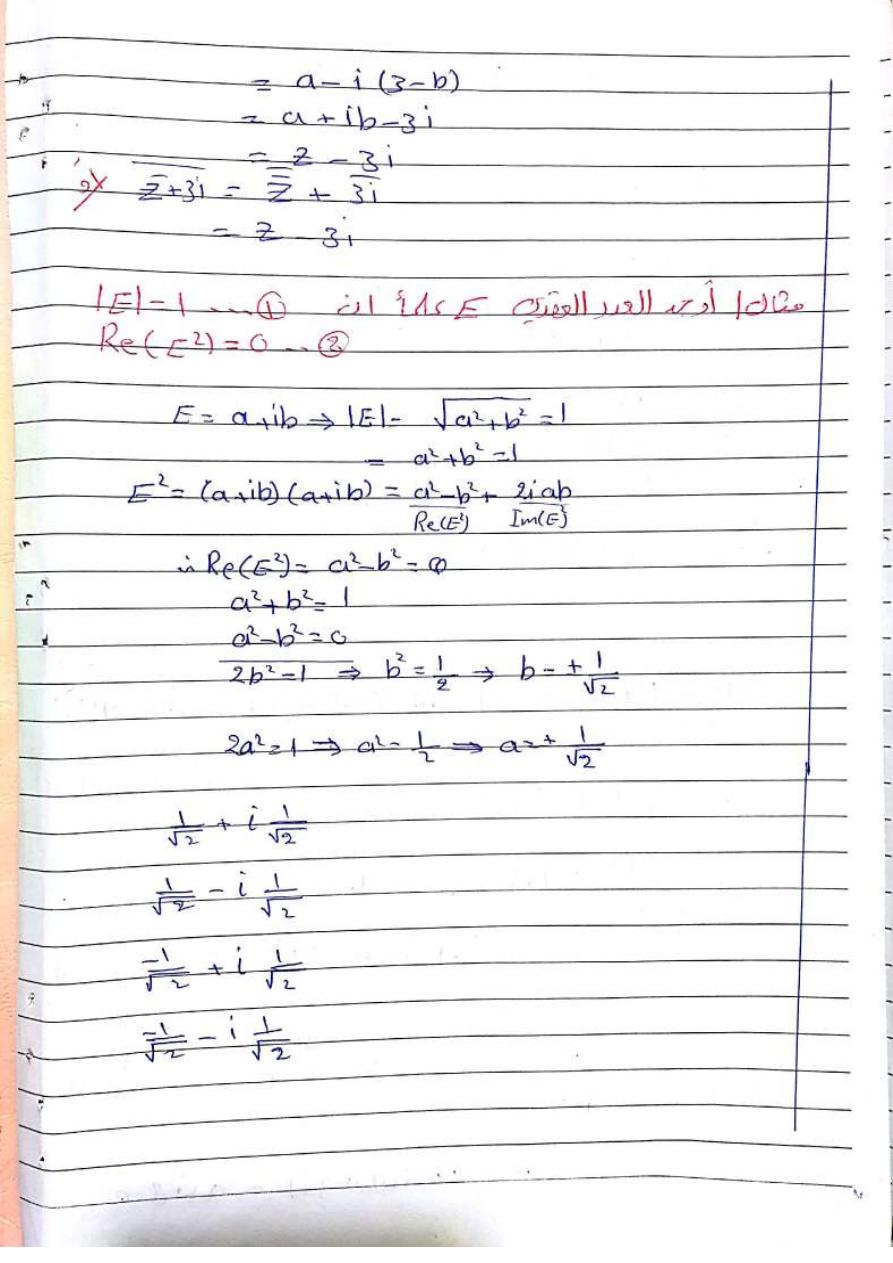 = a - i (3-b)
= a + ib - 3i
= z - 3i
أو \overline{\overline{z}+3i} = \overline{\overline{z}} + \overline{3i}
= z - 3i
مثال أوجد العدد العقدي E علماً ان |E| = 1 .... ①
Re(E²) = 0 ... ②
E = a+ib ⇒ |E| = √(a²+b²) = 1
= a²+b² = 1
E² = (a+ib)(a+ib) = a²-b² + 2iab
Re(E²) Im(E²)
∴ Re(E²) = a²-b² = 0
a²+b² = 1
a²-b² = 0
2b² = 1 ⇒ b² = 1/2 → b = ± 1/√2
2a² = 1 ⇒ a² = 1/2 ⇒ a = ± 1/√2
1/√2 + i 1/√2
1/√2 - i 1/√2
-1/√2 + i 1/√2
-1/√2 - i 1/√2